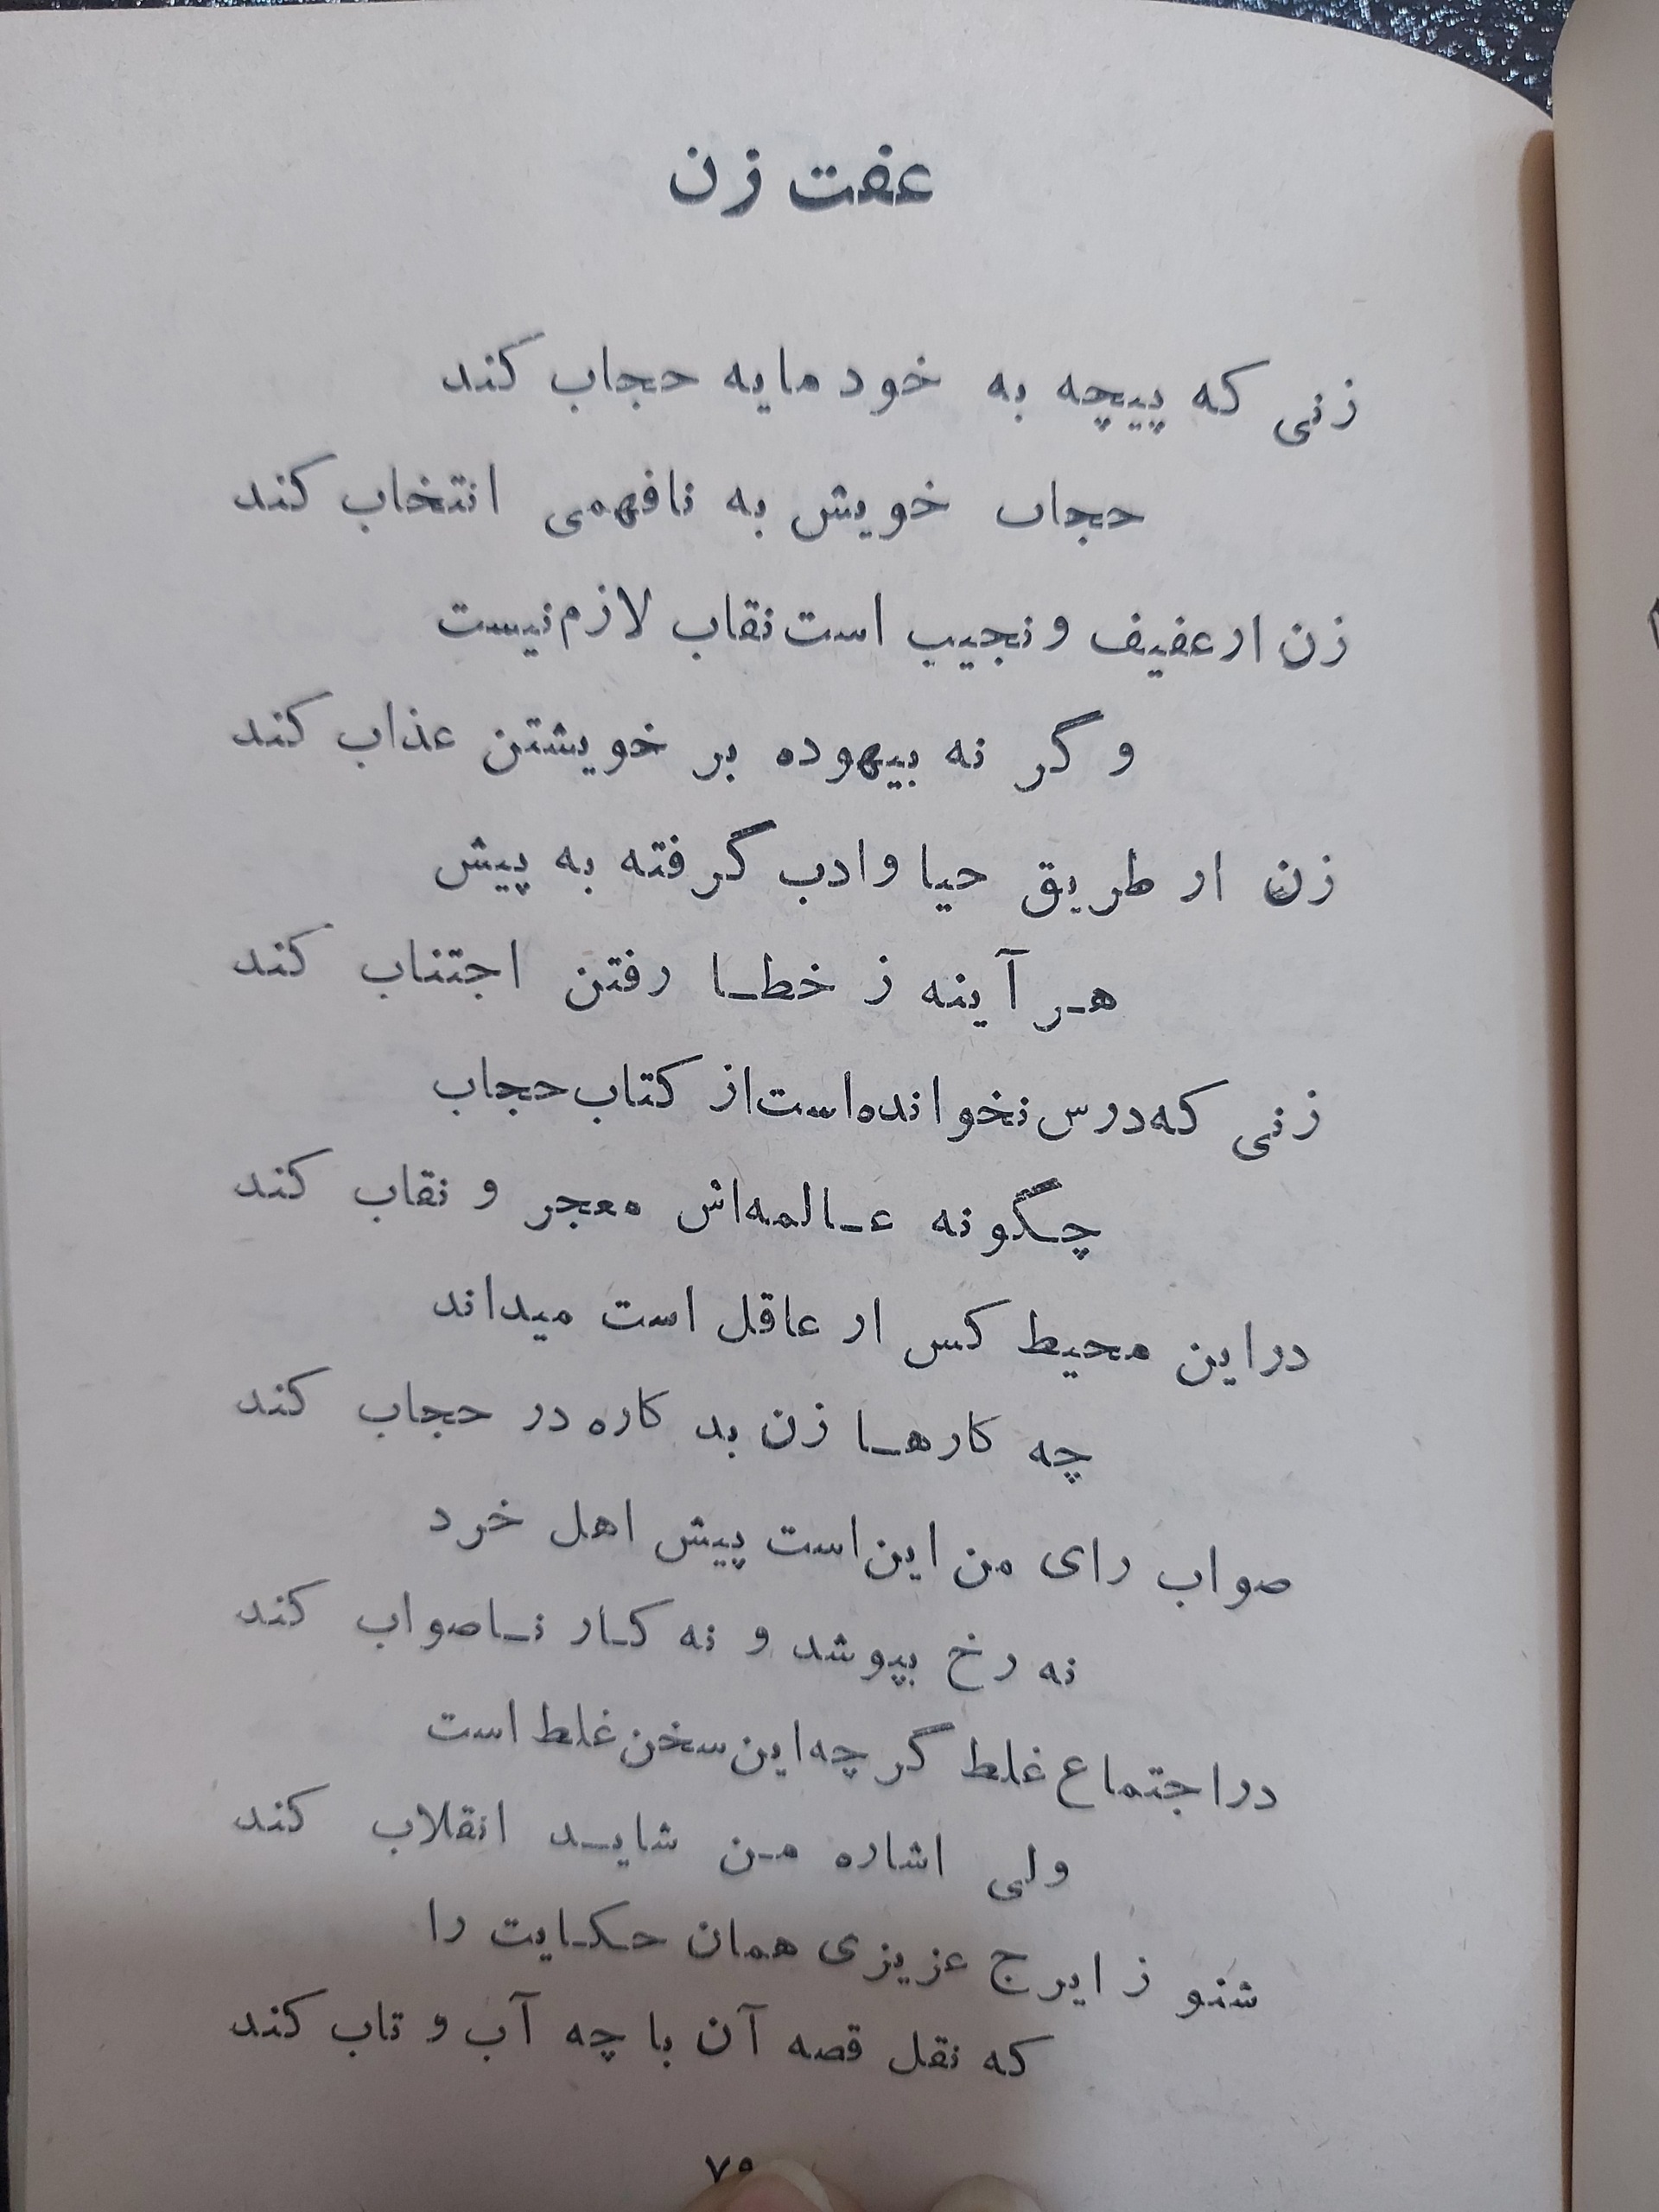 عفت زن
زنی که پیچه به خود مایه حجاب کند
حجاب خویش به نافهمی انتخاب کند
زن ار عفیف و نجیب است نقاب لازم نیست
و گر نه بیهوده بر خویشتن عذاب کند
زن ار طریق حیا و ادب گرفته به پیش
هر آینه ز خطا رفتن اجتناب کند
زنی که درس نخوانده است از کتاب حجاب
چگونه عالمه‌اش معجر و نقاب کند
در این محیط کس ار عاقل است میداند
چه کارها زن بد کاره در حجاب کند
صواب رای من این است پیش اهل خرد
نه رخ بپوشد و نه کار ناصواب کند
در اجتماع غلط گر چه این سخن غلط است
ولی اشاره من شاید انقلاب کند
شنو ز ایرج عزیزی همان حکایت را
که نقل قصه آن با چه آب و تاب کند